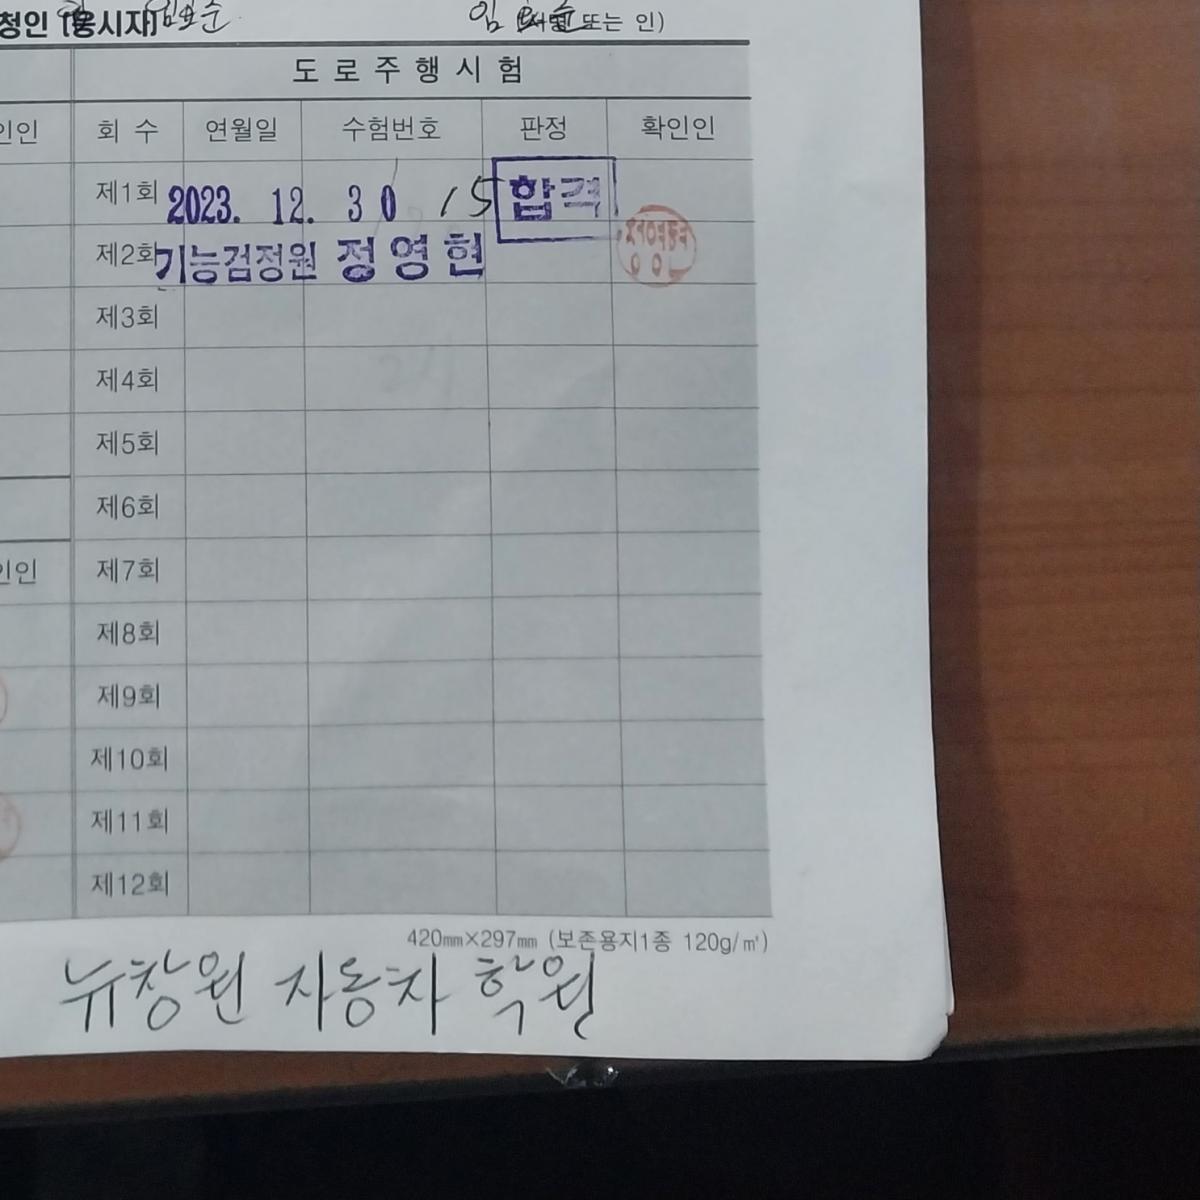 청인 (응시자) 임보순 임보순 (서명 또는 인)
도로주행시험
인인 회 수 연월일 수험번호 판정 확인인
제1회 2023. 12. 30 15 합격
제2회 기능검정원 정영현
제3회
제4회
제5회
제6회
인인 제7회
제8회
제9회
제10회
제11회
제12회
420mm×297mm (보존용지1종 120g/㎡)
뉴창원 자동차 학원